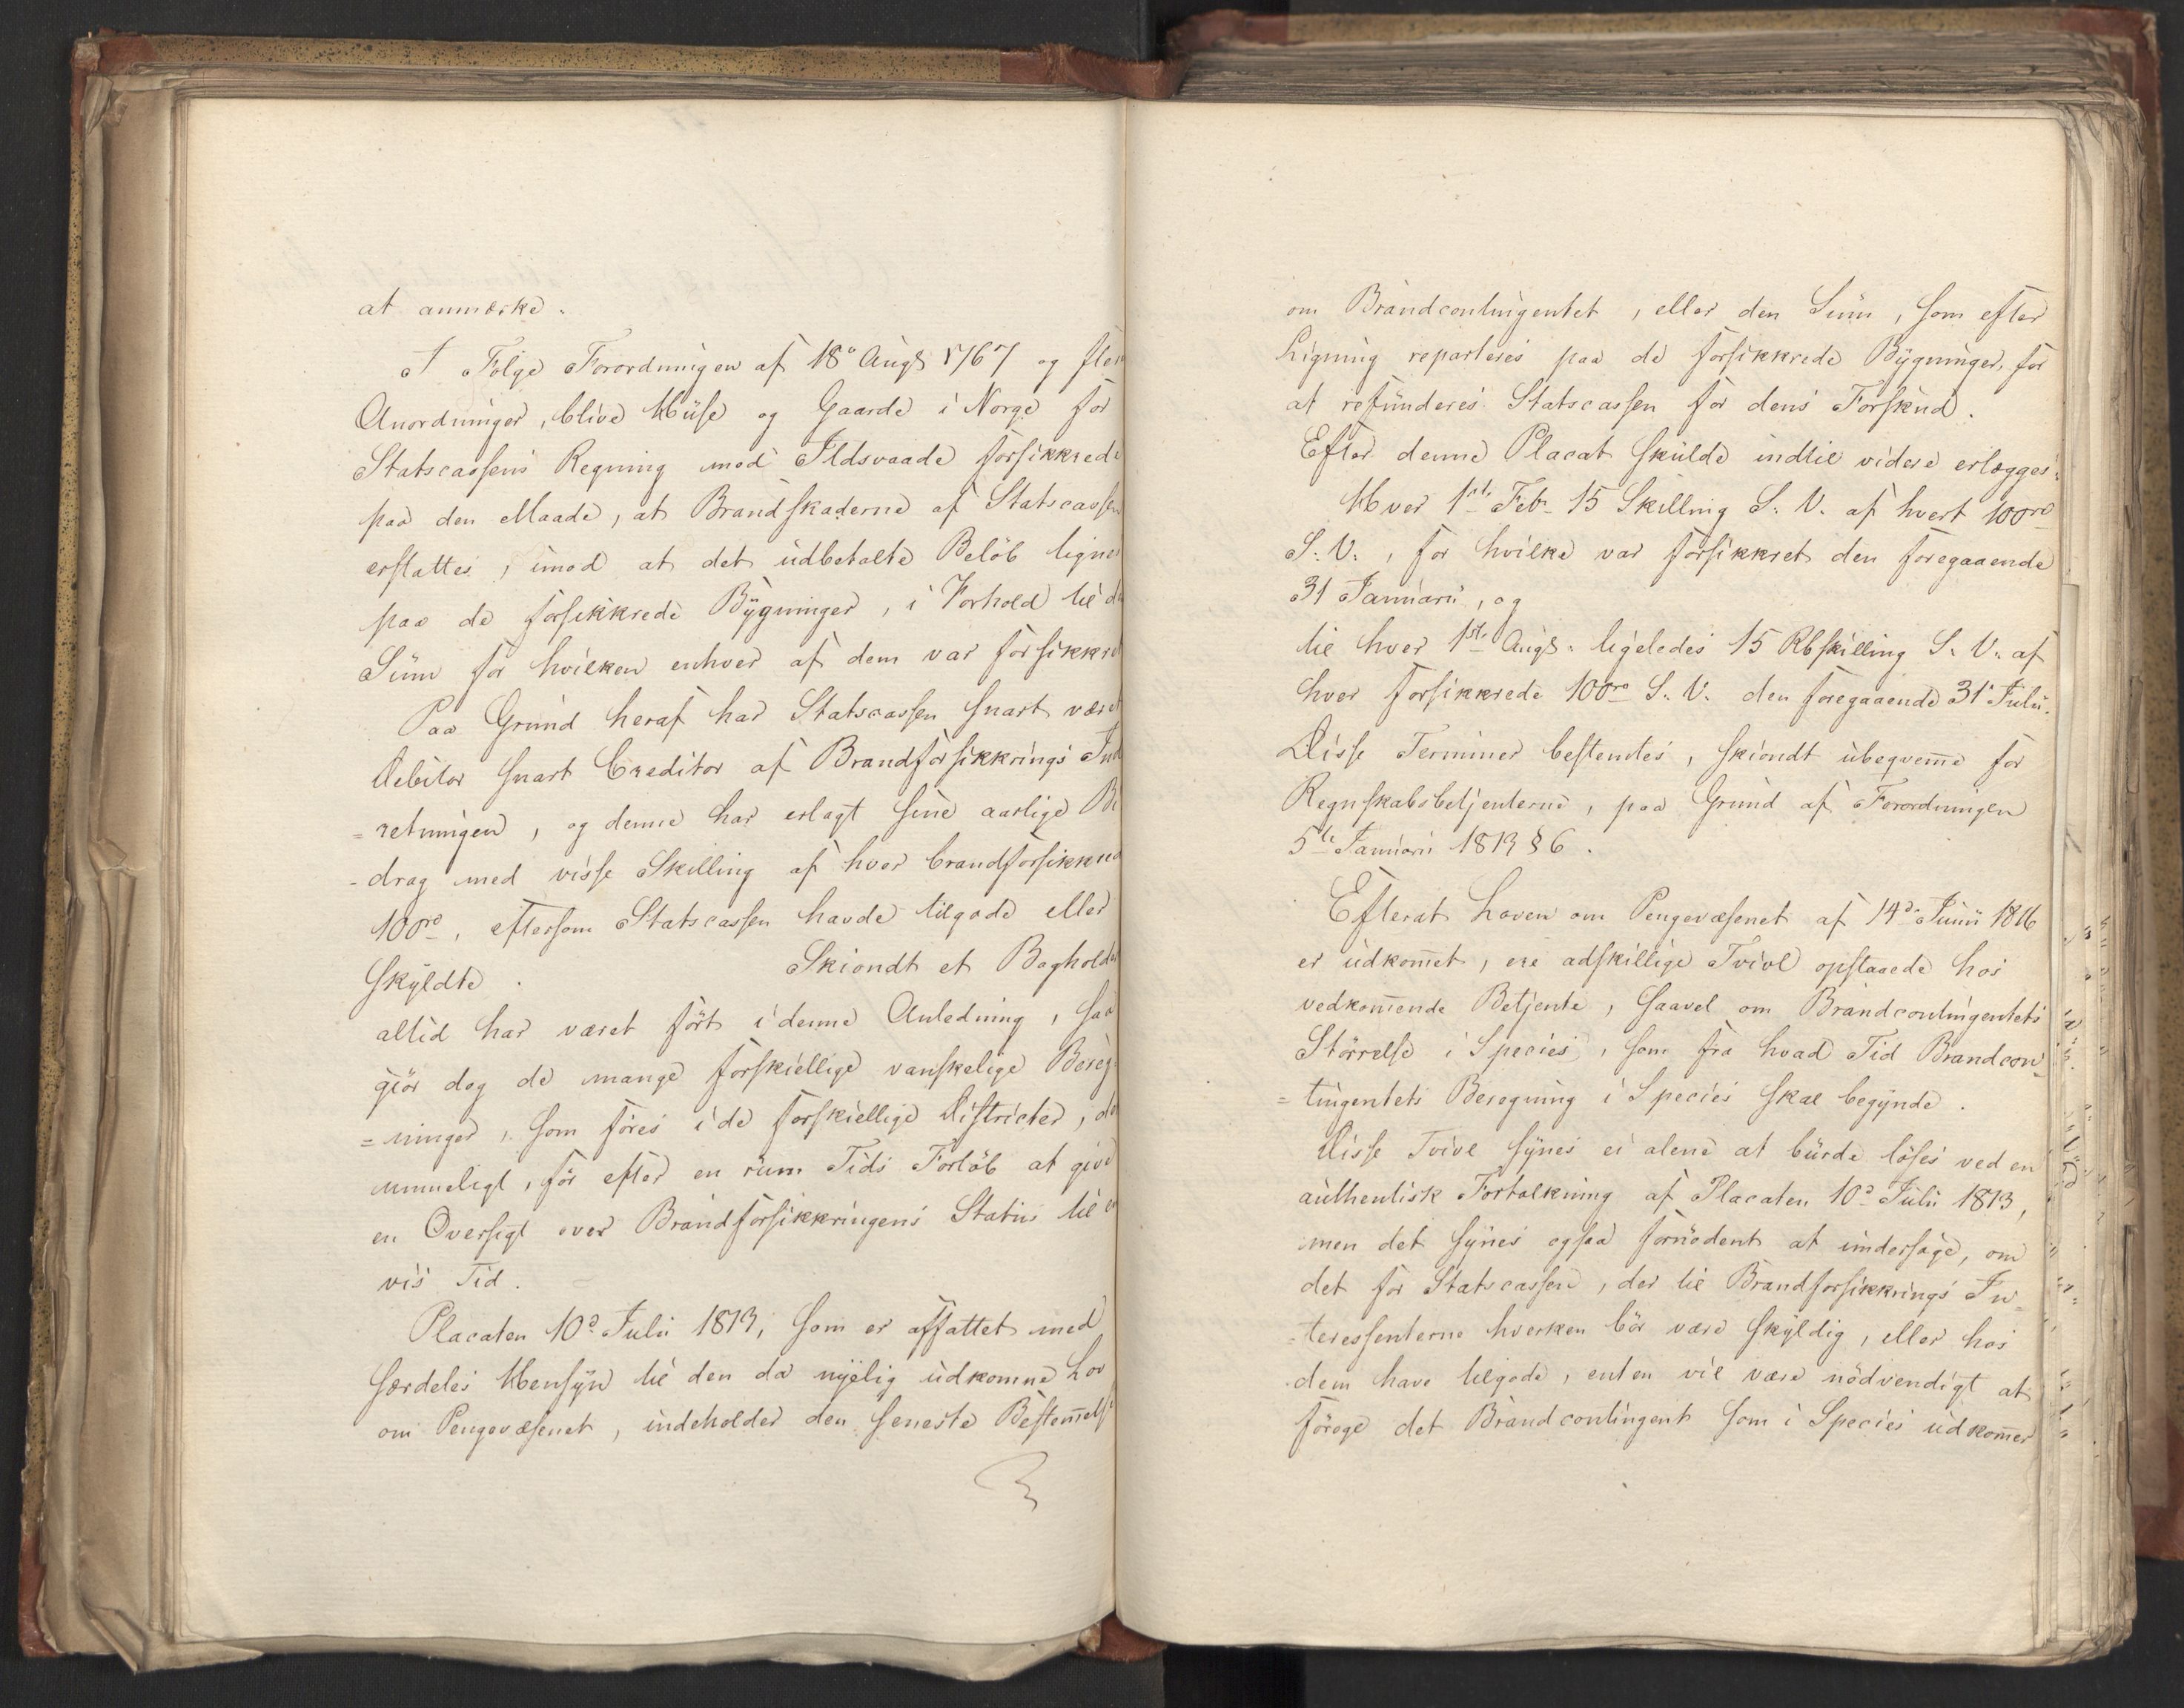 at anmærke.
I Følge Forordningen af 18de Augs 1767 og flere
Anordninger, blive Huse og Gaarde i Norge for
Statscassens Regning mod Ildsvaade forsikkrede
paa den Maade, at Brandskaderne af Statscassen
erstattes, imod at det udbetalte Beløb lignes
paa de forsikkrede Bygninger, i Forhold til den
Sum for hvilken enhver af dem var forsikkret
Paa Grund heraf har Statscassen snart været
Debitor snart Creditor af Brandforsikkrings Ind
=retningen, og denne har erlagt sine aarlige Bi
-drag med visse Skilling af hver brandforsikkred
100rd, eftersom Statscassen havde tilgode eller
skyldte. Skiøndt et Bogholderi
altid har været ført i denne Anledning, saa
giør dog de mange forskiellige vanskelige Bereg
=ninger, som føres i de forskiellige Districter, det
umueligt, før efter en rum Tids Forløb at give
en Oversigt over Brandforsikkringens Status til en
vis Tid.
Placaten 10de Julii 1813, som er affattet med
særdeles Hensyn til den da nyelig udkomne Lov
om Pengevæsenet, indeholder den seneste Bestem̄else
om Brandcontingentet, eller den Sum, som efter
Ligning reparteres paa de forsikkrede Bygninger, for
at refunderes Statscassen for dens Forskud.
Efter denne Placat skulde indtil videre erlægges:
Hver 1ste Febr 15 Skilling S. V. af hvert 100rd
S. V., for hvilke var forsikkret den foregaaende
31 Januarii, og
til hver 1ste Augs. ligeledes 15 Rbskilling S. V. af
hver forsikkrede 100rd S. V. den foregaaende 31 Julii.
Disse Terminer bestemtes, skiøndt ubeqvem̄e for
Regnskabsbetjenterne, paa Grund af Forordningen
5te Januarii 1813 § 6.
Efterat Loven om Pengevæsenet af 14de Junii 1816
er udkom̄et, ere adskillige Tvivl opstaaede hos
vedkom̄ende Betjente, saavel om Brandcontingentets
Størrelse i Species, som fra hvad Tid Brandcon
=tingentets Beregning i Species skal begynde.
Disse Tvivl synes ei alene at burde løses ved en
authentisk Fortolkning af Placaten 10de Julii 1813,
men det synes ogsaa fornødent at undersøge, om
det for Statscassen, der til Brandforsikkrings In
=teressenterne hverken bør være skyldig, eller hos
dem have tilgode, enten vil være nødvendigt at
forøge det Brandcontingent som i Species udkom̄er